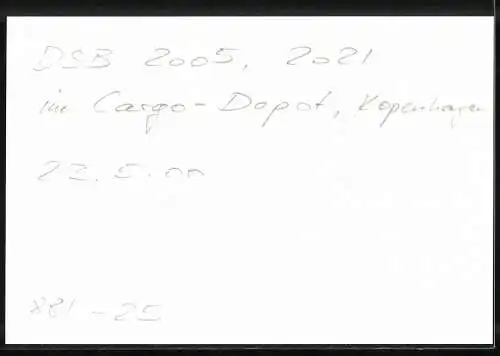 DSB 2005, 2021
im Cargo-Depot, Kopenhagen
23.5.00
881-25